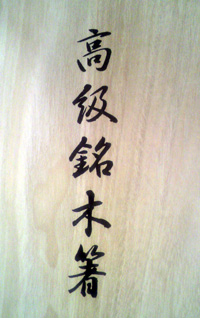 高級銘木箸